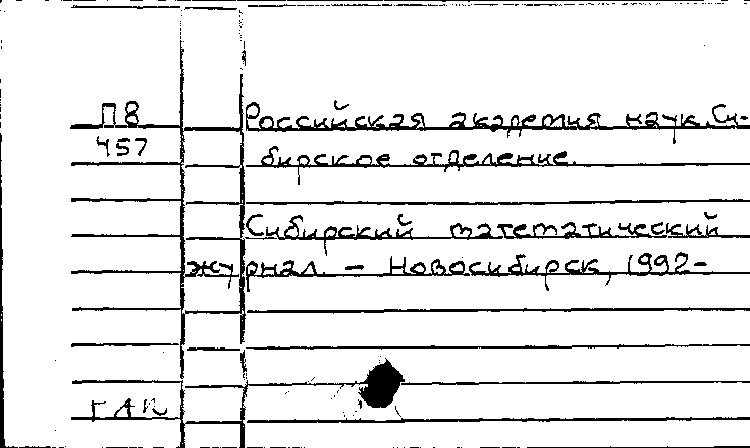 П8 Российская академия наук. Си-
457 бирское отделение.
Сибирский математический
журнал. – Новосибирск, 1992-